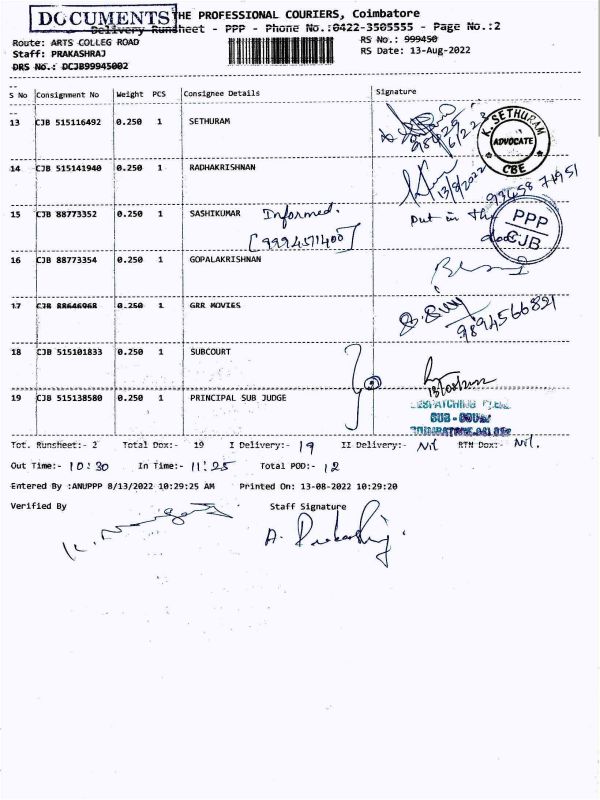 DOCUMENTS THE PROFESSIONAL COURIERS, Coimbatore
Delivery Runsheet - PPP - Phone No.:0422-3505555 - Page No.:2
Route: ARTS COLLEG ROAD RS No.: 999450
Staff: PRAKASHRAJ RS Date: 13-Aug-2022
DRS No.: DCJB99945002
S No Consignment No Weight PCS Consignee Details Signature
13 CJB 515116492 0.250 1 SETHURAM
K. SETHURAM ADVOCATE CBE
14 CJB 515141940 0.250 1 RADHAKRISHNAN 13/8/2022
93458 71951
15 CJB 88773352 0.250 1 SASHIKUMAR Informed. Put in the
[9994571400] door
PPP CJB
16 CJB 88773354 0.250 1 GOPALAKRISHNAN
17 CJB 88646968 0.250 1 GRR MOVIES 9894566821
18 CJB 515101833 0.250 1 SUBCOURT
19 CJB 515138580 0.250 1 PRINCIPAL SUB JUDGE
Tot. Runsheet:- 2 Total Dox:- 19 I Delivery:- 19 II Delivery:- Nil RTN Dox:- Nil.
Out Time:- 10:30 In Time:- 11:25 Total POD:- 12
Entered By :ANUPPP 8/13/2022 10:29:25 AM Printed On: 13-08-2022 10:29:20
Verified By Staff Signature
A. Prakashraj.